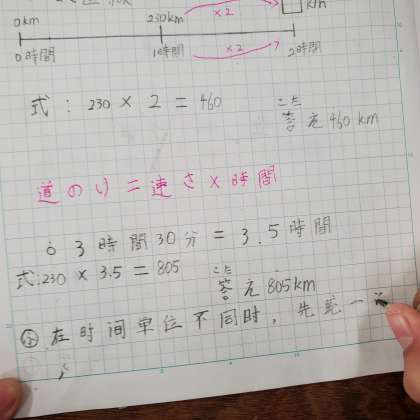 0km 230km ×2 km
0時間 1時間 ×2 2時間
式:230 × 2 = 460
こた
答え 460 km
道のり=速さ×時間
3時間30分 = 3.5時間
式:230 × 3.5 = 805
こた
答え 805km
在时间单位不同时,先